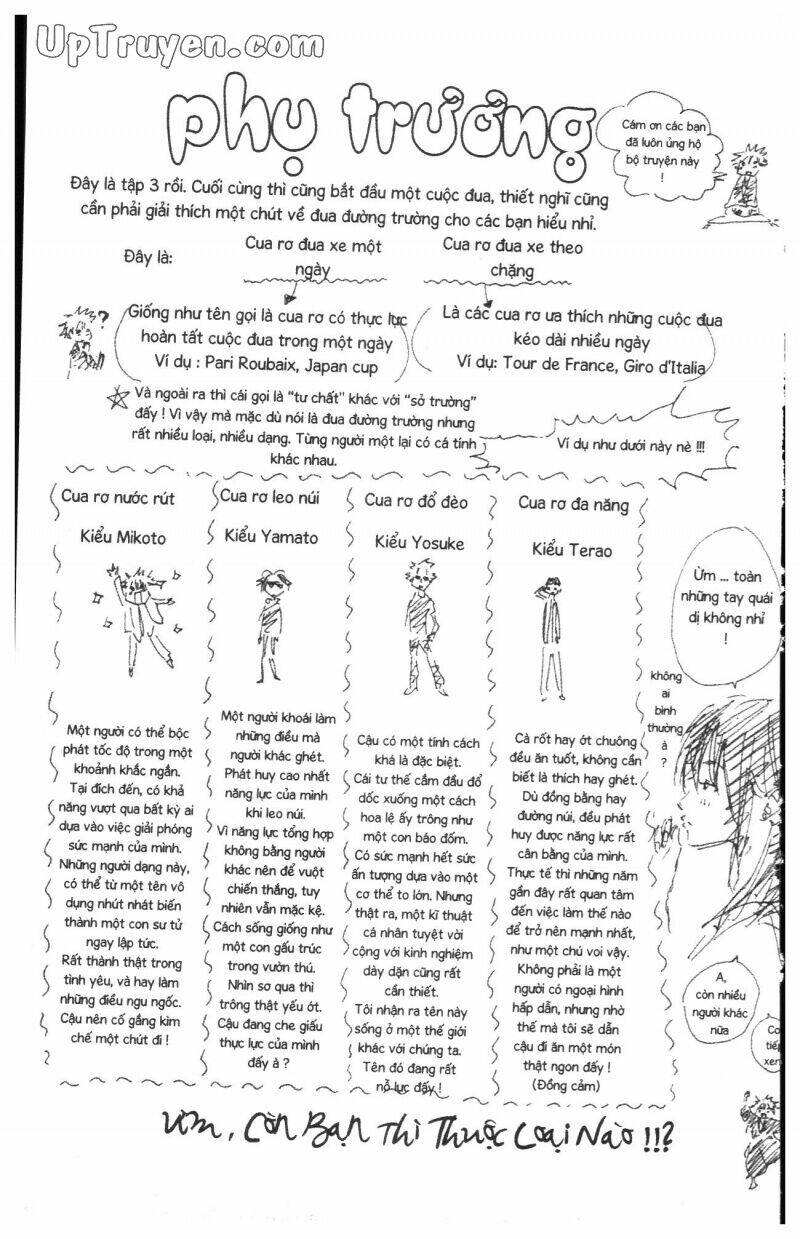 UpTruyen.com
phụ trương
Cám ơn các bạn
đã luôn ủng hộ
bộ truyện này
!
Đây là tập 3 rồi. Cuối cùng thì cũng bắt đầu một cuộc đua, thiết nghĩ cũng
cần phải giải thích một chút về đua đường trường cho các bạn hiểu nhỉ.
Đây là:
Cua rơ đua xe một
ngày
Cua rơ đua xe theo
chặng
?
Giống như tên gọi là cua rơ có thực lực
hoàn tất cuộc đua trong một ngày
Ví dụ : Pari Roubaix, Japan cup
Là các cua rơ ưa thích những cuộc đua
kéo dài nhiều ngày
Ví dụ: Tour de France, Giro d'Italia
Và ngoài ra thì cái gọi là “tư chất” khác với “sở trường”
đấy ! Vì vậy mà mặc dù nói là đua đường trường nhưng
rất nhiều loại, nhiều dạng. Từng người một lại có cá tính
khác nhau.
Ví dụ như dưới này nè !!!
Cua rơ nước rút
Kiểu Mikoto
Một người có thể bộc
phát tốc độ trong một
khoảnh khắc ngắn.
Tại đích đến, có khả
năng vượt qua bất kỳ ai
dựa vào việc giải phóng
sức mạnh của mình.
Những người dạng này,
có thể từ một tên vô
dụng nhút nhát biến
thành một con sư tử
ngay lập tức.
Rất thành thật trong
tình yêu, và hay làm
những điều ngu ngốc.
Cậu nên cố gắng kìm
chế một chút đi !
Cua rơ leo núi
Kiểu Yamato
Một người khoái làm
những điều mà
người khác ghét.
Phát huy cao nhất
năng lực của mình
khi leo núi.
Vì năng lực tổng hợp
không bằng người
khác nên để vuột
chiến thắng, tuy
nhiên vẫn mặc kệ.
Cách sống giống như
một con gấu trúc
trong vườn thú.
Nhìn sơ qua thì
trông thật yếu ớt.
Cậu đang che giấu
thực lực của mình
đấy à ?
Cua rơ đổ đèo
Kiểu Yosuke
Cậu có một tính cách
khá là đặc biệt.
Cái tư thế cắm đầu đổ
dốc xuống một cách
hoa lệ ấy trông như
một con báo đốm.
Có sức mạnh hết sức
ấn tượng dựa vào một
cơ thể to lớn. Nhưng
thật ra, một kĩ thuật
cá nhân tuyệt vời
cộng với kinh nghiệm
dày dặn cũng rất
cần thiết.
Tôi nhận ra tên này
sống ở một thế giới
khác với chúng ta.
Tên đó đang rất
nỗ lực đấy !
Cua rơ đa năng
Kiểu Terao
Cà rốt hay ớt chuông
đều ăn tuốt, không cần
biết là thích hay ghét.
Dù đồng bằng hay
đường núi, đều phát
huy được năng lực rất
cân bằng của mình.
Thực tế thì những năm
gần đây rất quan tâm
đến việc làm thế nào
để trở nên mạnh nhất,
như một chú voi vậy.
Không phải là một
người có ngoại hình
hấp dẫn, nhưng nhờ
thế mà tôi sẽ dẫn
cậu đi ăn một món
thật ngon đấy !
(Đồng cảm)
Ừm ... toàn
những tay quái
dị không nhỉ
!
không
ai
bình
thường
à
?
A,
còn nhiều
người khác
nữa
Ừm, Còn Bạn Thì Thuộc Loại Nào !!?